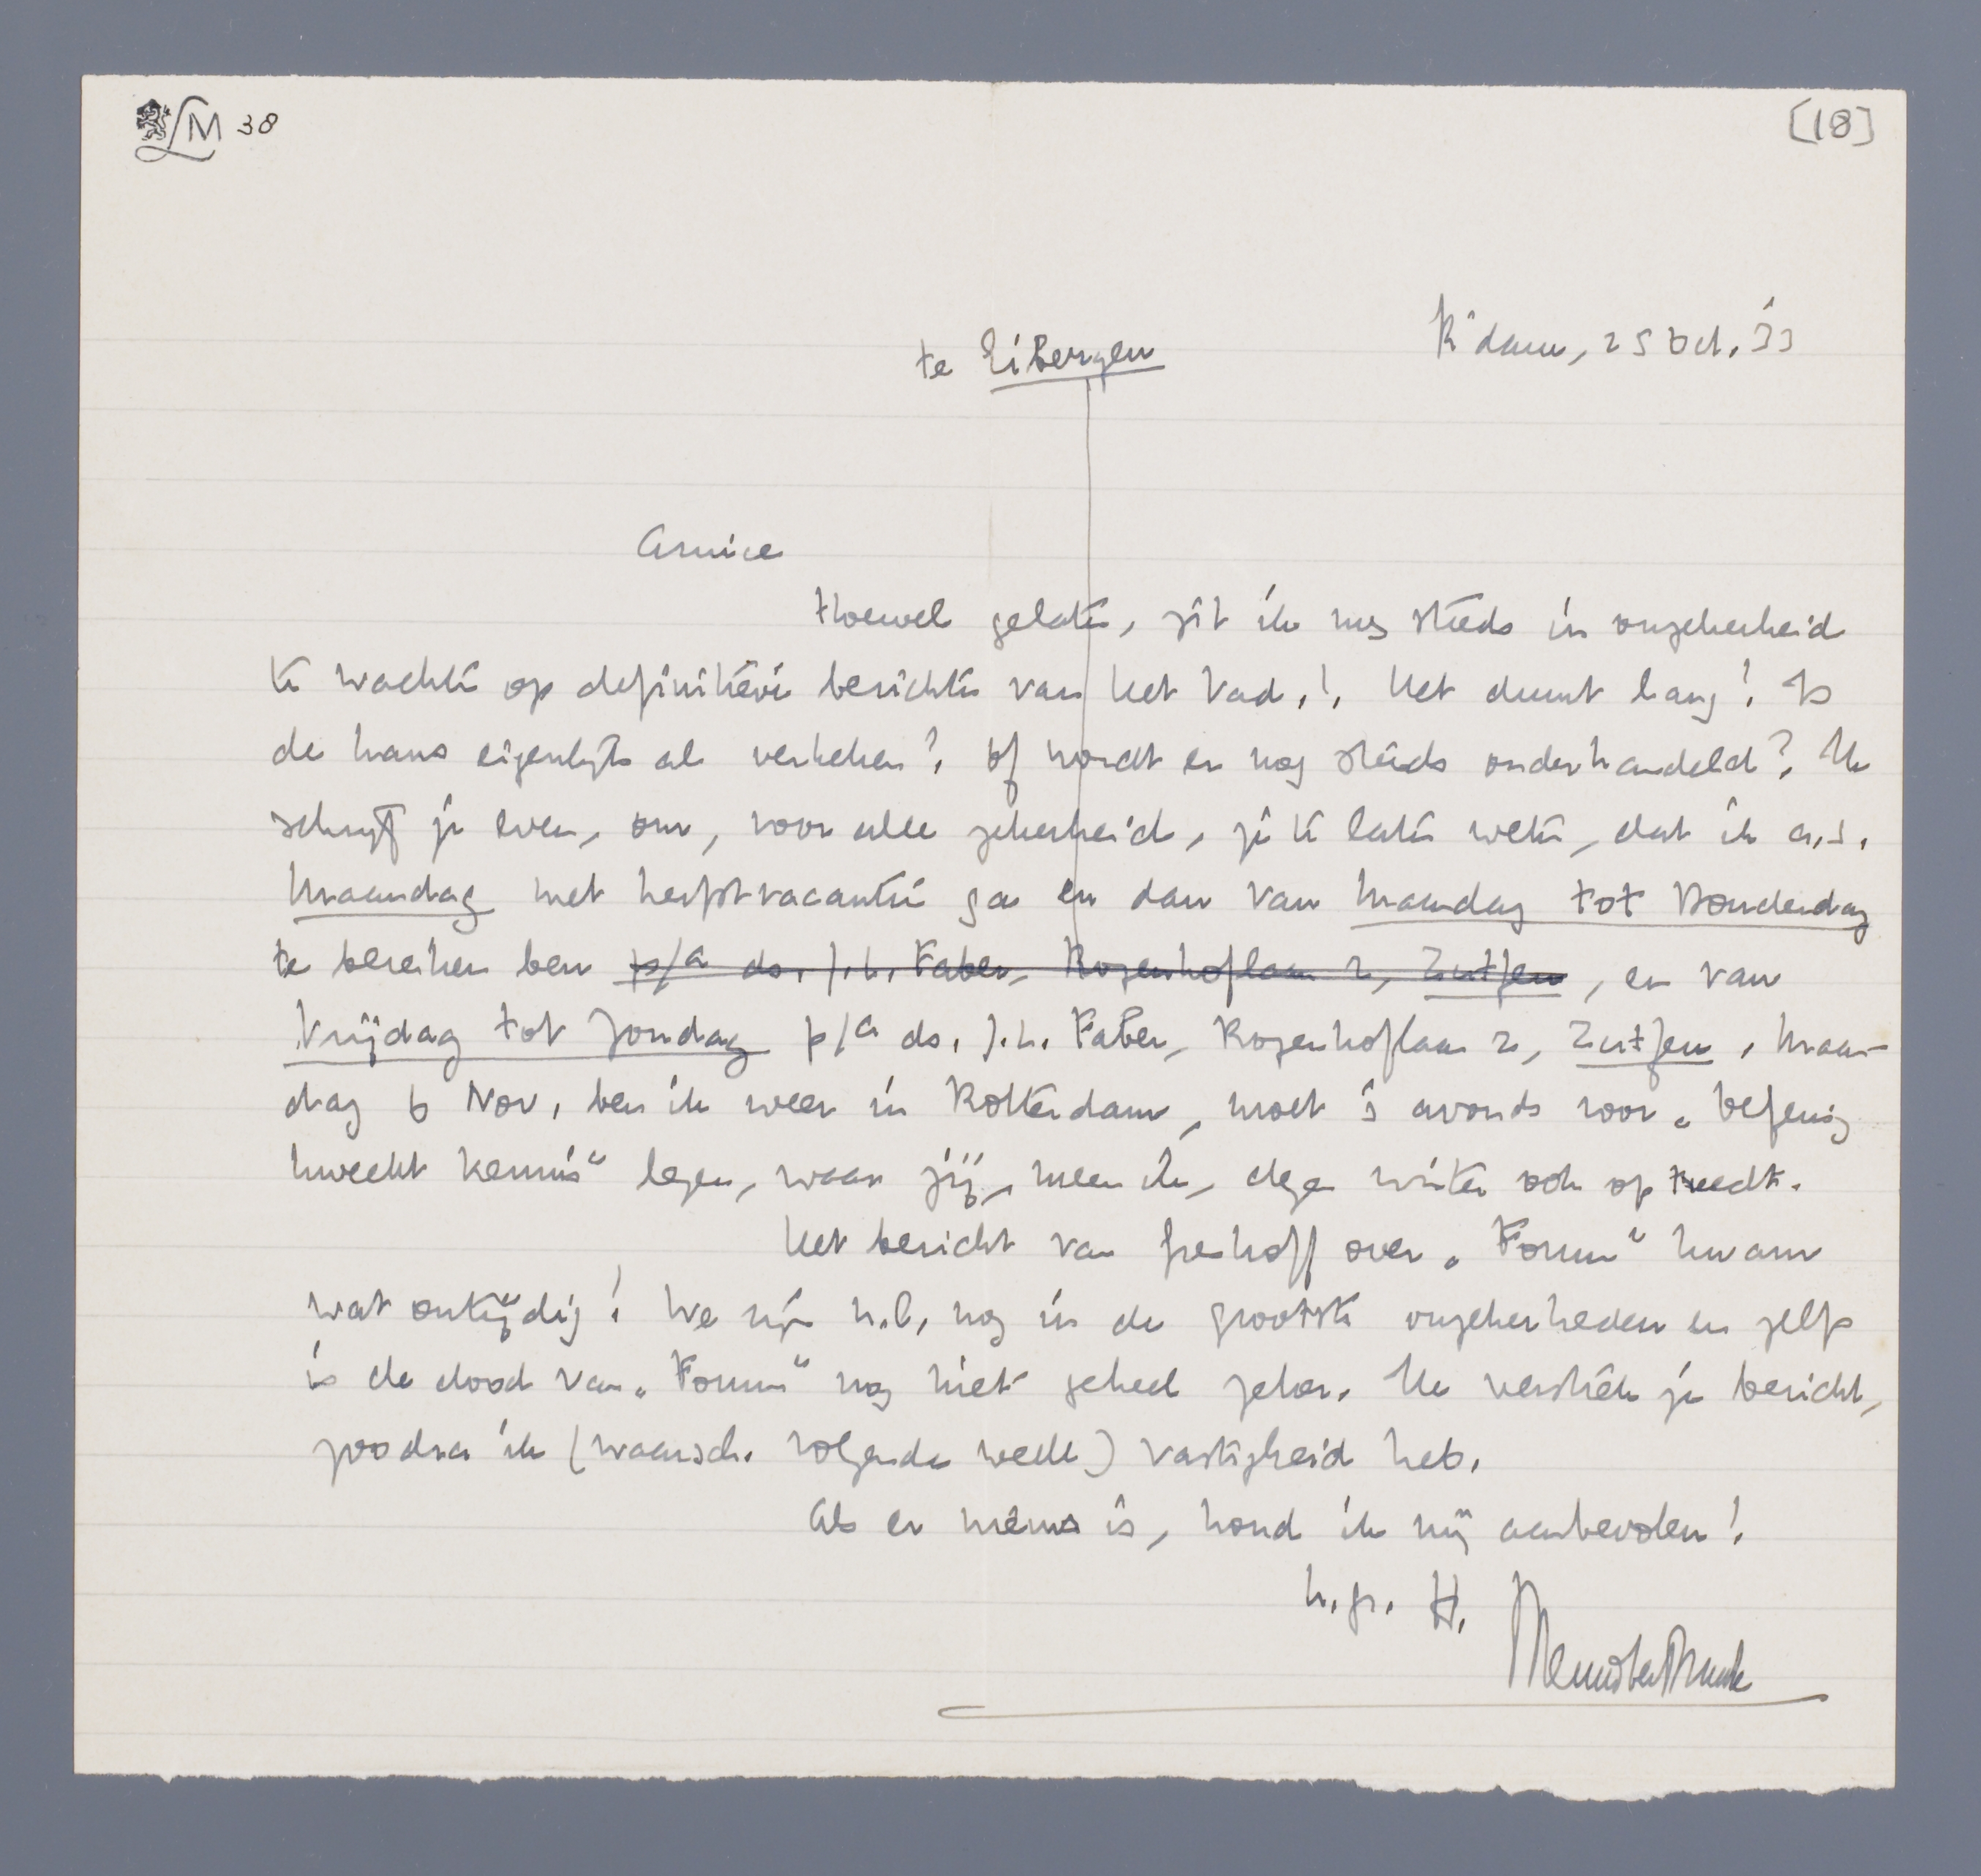 LM 38
[18]
R'dam, 25 Oct. '33
te Eibergen
Amice
Hoewel gelaten, zit ik nog steeds in onzekerheid
te wachten op definitieve berichten van Het Vad.!. Het duurt lang! Is
de kans eigenlijk al verkeken? Of wordt er nog steeds onderhandeld? Ik
schrijf je even, om, voor alle zekerheid, je te laten weten, dat ik a.s.
Maandag met herfstvacantie ga en dan van Maandag tot Donderdag
te bereiken ben p/a ds. J.L. Faber, Rozenhoflaan 2, Zutfen, en van
Vrijdag tot Zondag p/a ds. J.L. Faber, Rozenhoflaan 2, Zutfen. Maan-
dag 6 Nov. ben ik weer in Rotterdam, moet 's avonds voor „Oefening
kweekt kennis" lezen, waar jij, meen ik, dezen winter ook optreedt.
Het bericht van Greshoff over „Forum" kwam
wat ontijdig! We zijn n.l. nog in de grootste onzekerheden en zelfs
is de dood van „Forum" nog niet geheel zeker. Ik verstrek je bericht,
zoodra ik (waarsch. volgende week) vastigheid heb.
Als er nieuws is, houd ik mij aanbevolen!
h.gr. H.
Menno ter Braak